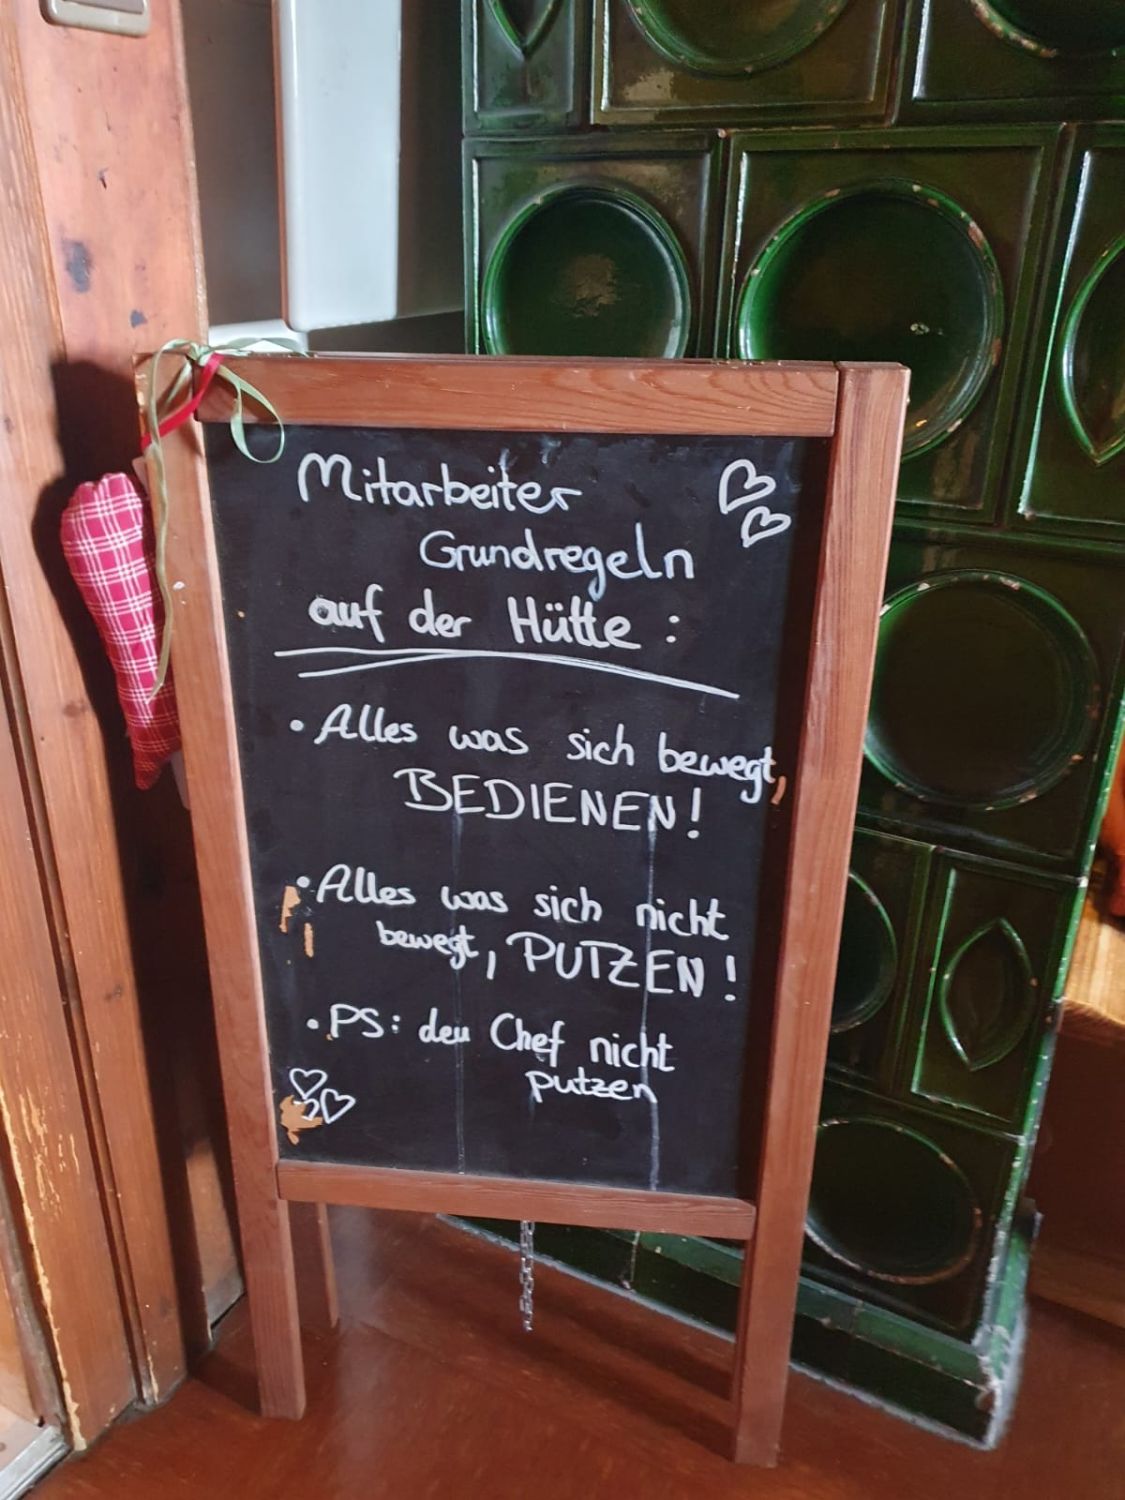 Mitarbeiter
Grundregeln
auf der Hütte:
• Alles was sich bewegt,
BEDIENEN!
• Alles was sich nicht
bewegt, PUTZEN!
• PS: den Chef nicht
putzen